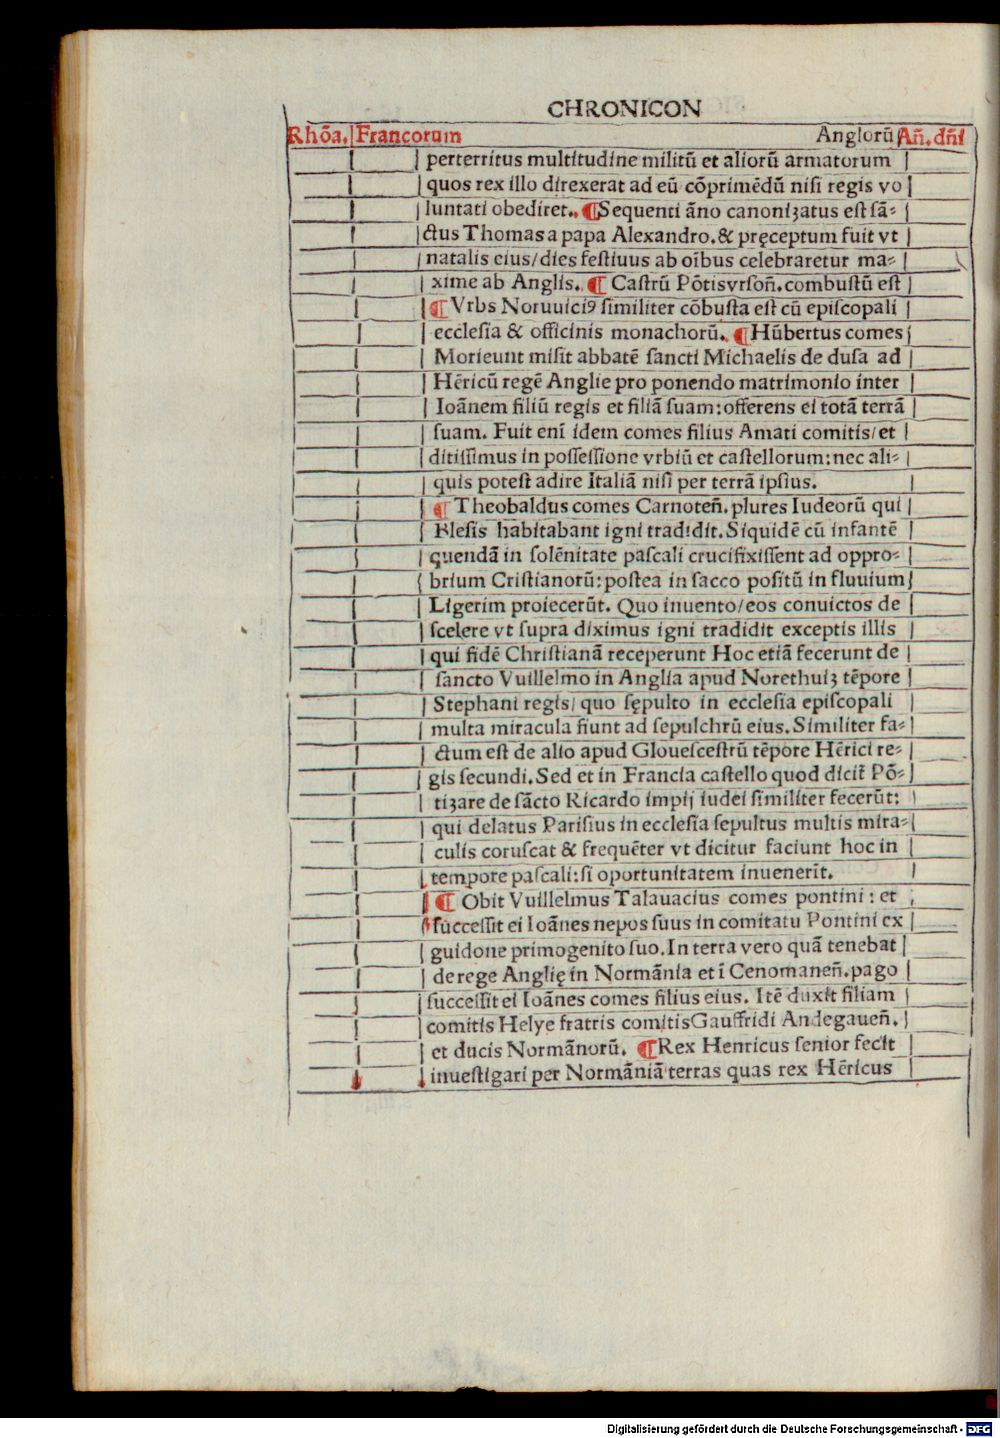 CHRONICON
Rhõa. Francorum Anglorũ Añ. dñi
perterritus multitudine militũ et aliorũ armatorum
quos rex illo direxerat ad eũ cõprimẽdũ nisi regis vo
luntati obediret. ¶Sequenti ãno canoniȝatus est sã⸗
ctus Thomas a papa Alexandro. & pręceptum fuit vt
natalis eius/dies festiuus ab oĩbus celebraretur ma⸗
xime ab Anglis. ¶ Castrũ Põtisvrsoñ. combustũ est
¶ Vrbs Noruuiciꝰ similiter cõbusta est cũ episcopali
ecclesia & officinis monachorũ. ¶Hũbertus comes
Morieunt misit abbatẽ sancti Michaelis de dusa ad
Hẽricũ regẽ Anglie pro ponendo matrimonio inter
Ioãnem filiũ regis et filiã suam: offerens ei totã terrã
suam. Fuit enĩ idem comes filius Amati comitis/et
ditissimus in possessione vrbiũ et castellorum: nec ali⸗
quis potest adire Italiã nisi per terrã ipsius.
¶ Theobaldus comes Carnoteñ. plures Iudeorũ qui
Blesis habitabant igni tradidit. Siquidẽ cũ infantẽ
quendã in solẽnitate pascali crucifixissent ad oppro⸗
brium Cristianorũ: postea in sacco positũ in fluuium
Ligerim proiecerũt. Quo inuento/eos conuictos de
scelere vt supra diximus igni tradidit exceptis illis
qui fidẽ Christianã receperunt Hoc etiã fecerunt de
sancto Vuillelmo in Anglia apud Norethuiȝ tẽpore
Stephani regis/ quo sępulto in ecclesia episcopali
multa miracula fiunt ad sepulchrũ eius. Similiter fa⸗
ctum est de alio apud Glouescestrũ tẽpore Hẽrici re⸗
gis secundi. Sed et in Francia castello quod dicit̃ Põ⸗
tiȝare de sãcto Ricardo impij iudei similiter fecerũt:
qui delatus Parisius in ecclesia sepultus multis mira⸗
culis coruscat & frequẽter vt dicitur faciunt hoc in
tempore pascali: si oportunitatem inuenerĩt.
¶ Obit Vuillelmus Talauacius comes pontini : et
successit ei Ioãnes nepos suus in comitatu Pontini ex
guidone primogenito suo. In terra vero quã tenebat
de rege Anglię in Normãnia et ĩ Cenomaneñ. pago
successit ei Ioãnes comes filius eius. Itẽ duxit filiam
comitis Helye fratris comitis Gauffridi Andegaueñ.
et ducis Normãnorũ. ¶Rex Henricus senior fecit
inuestigari per Normãniã terras quas rex Hẽricus
Digitalisierung gefördert durch die Deutsche Forschungsgemeinschaft - DFG